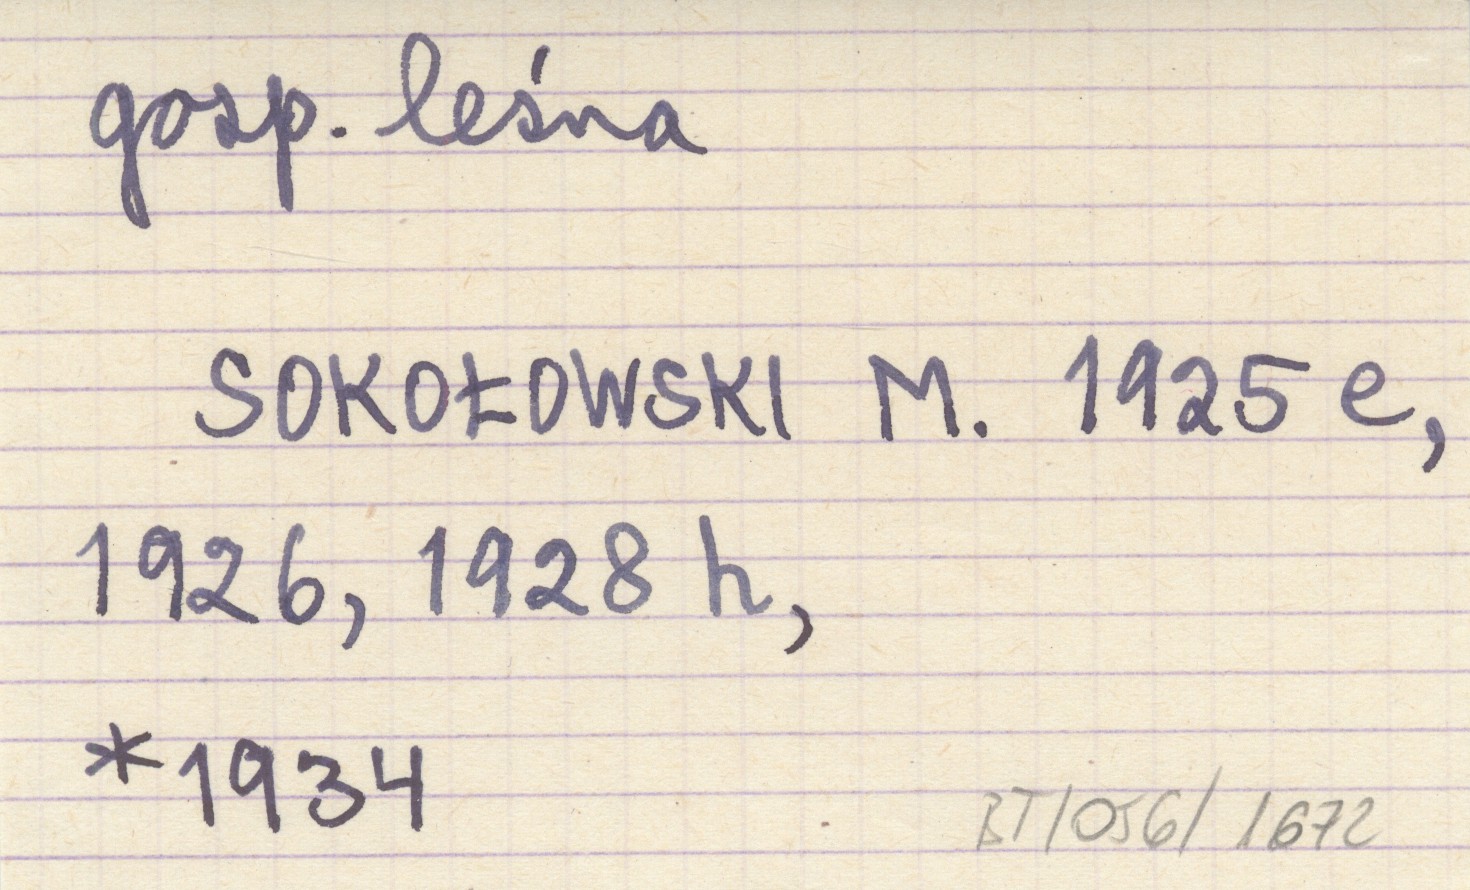 gosp. leśna
SOKOŁOWSKI M. 1925 e,
1926, 1928 h,
*1934
BT/056/1672